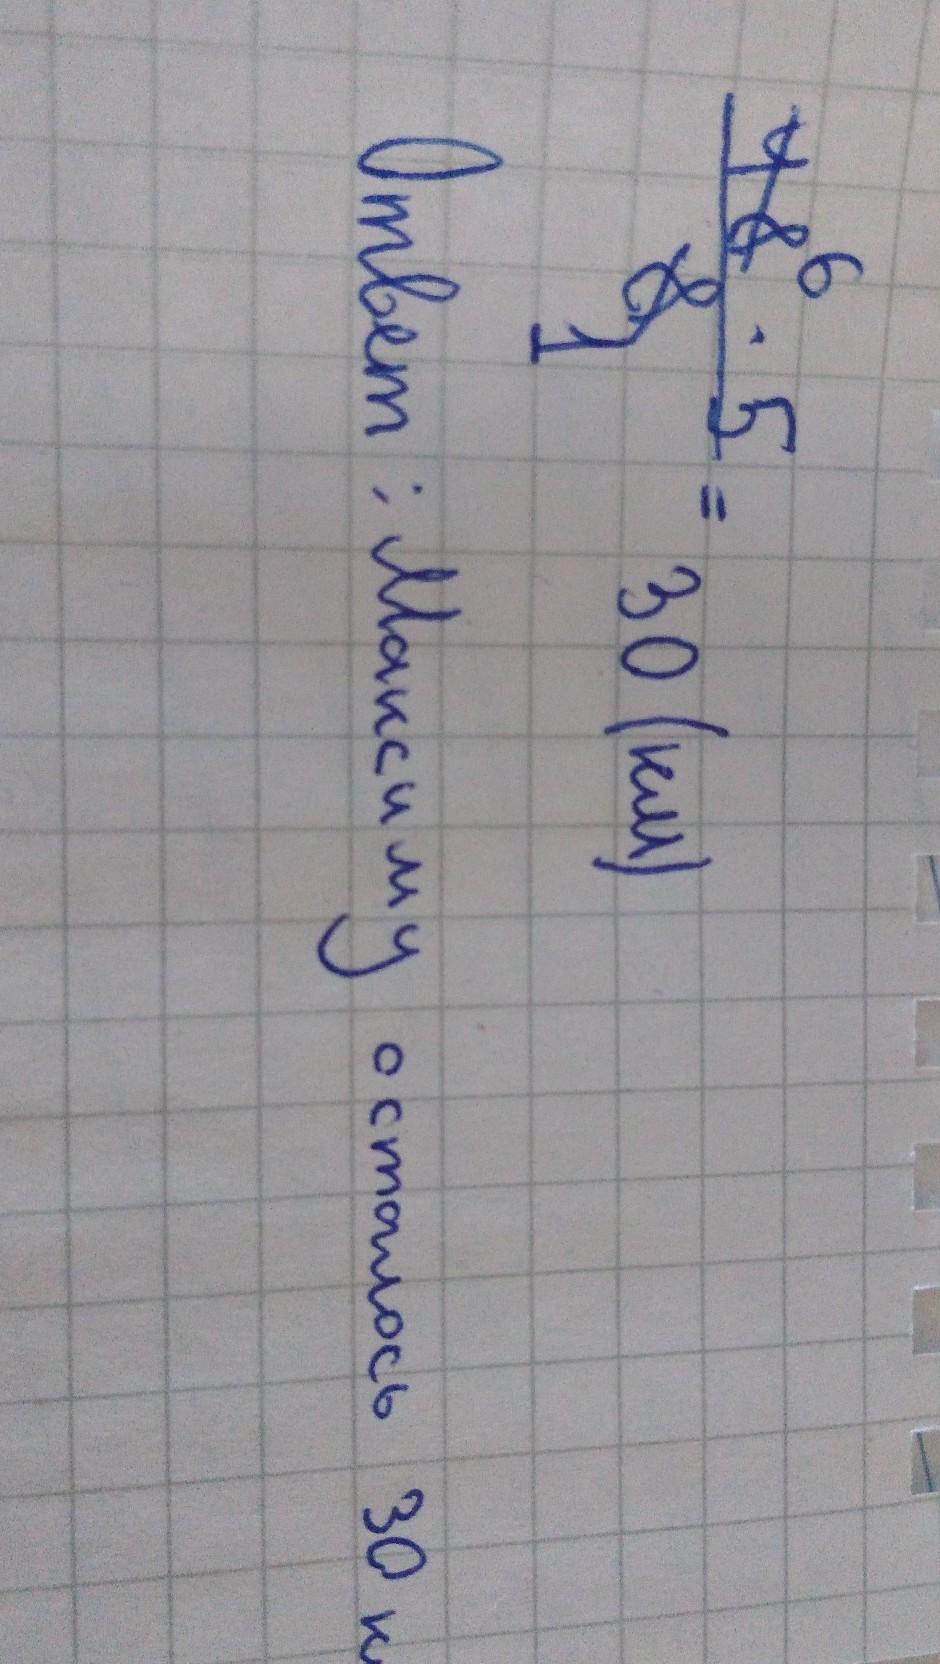 48 6 · 5 = 30 (км)
8 1
Ответ: Максиму осталось 30 к